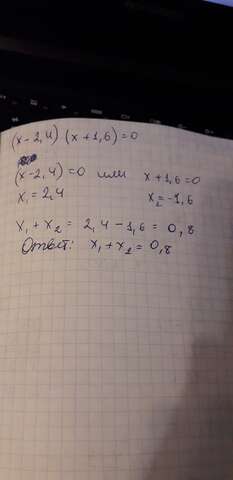 (x-2,4) (x+1,6)=0
(x-2,4)=0 или x+1,6=0
x₁=2,4 x₂=-1,6
x₁+x₂= 2,4-1,6= 0,8
Ответ: x₁+x₂=0,8